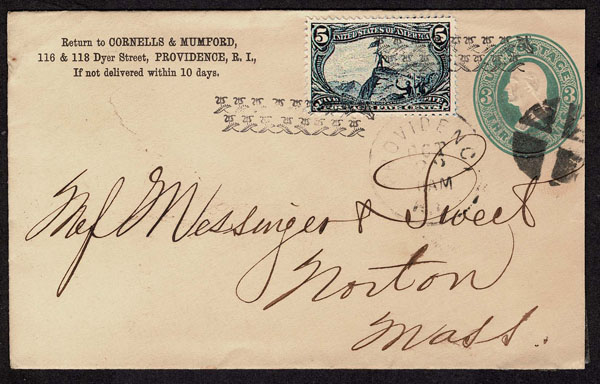 Return to CORNELLS & MUMFORD,
116 & 118 Dyer Street, PROVIDENCE, R. I.,
If not delivered within 10 days.
5 5
UNITED STATES OF AMERICA
POSTAGE
3 3
THREE
OVIDENC
OCT
AM
Messinger & Sweet
Norton
Mass.